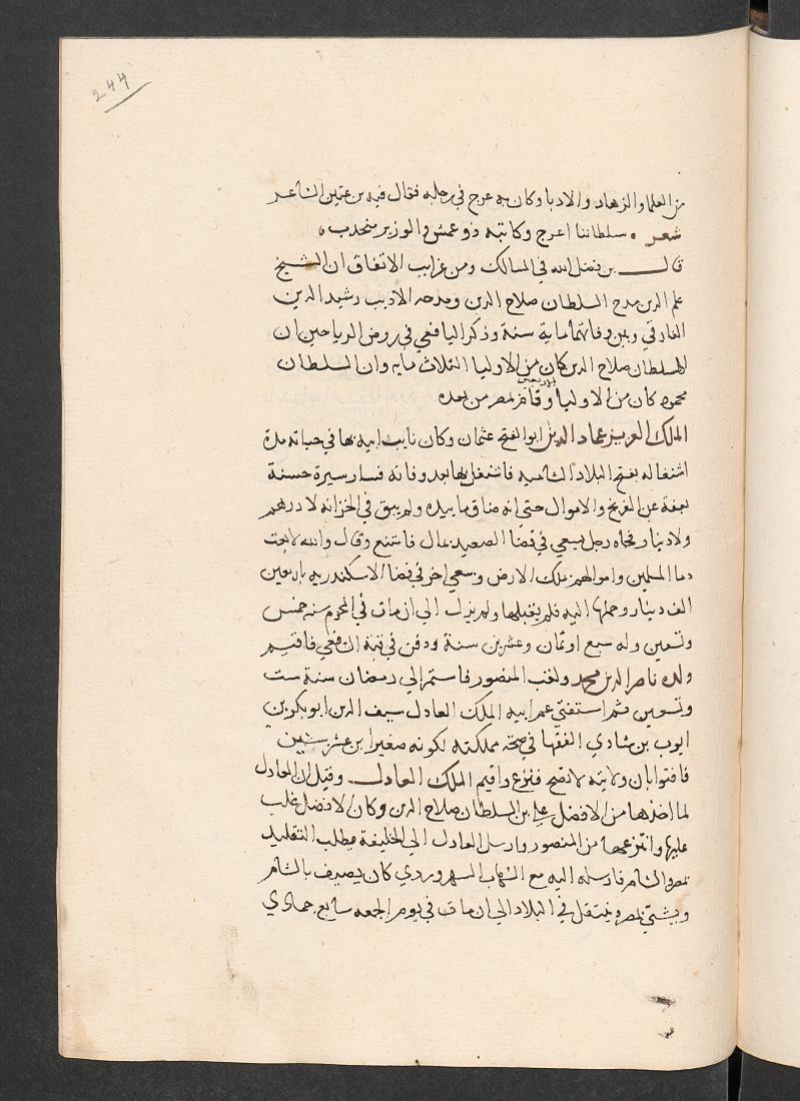 244
من العلما والزهاد والادبا وكان به عرج في رجله فقال فيه بن عنين الشاعر
شعر . سلطاننا اعرج وكاتبه ذو عمش والوزير منحدب .
قال بن فضل الله في المسالك ومن غرايب الاتفاق ان الشيخ
علم الدين مدح السلطان صلاح الدين ومدحه الاديب رشيد الدين
الفارقي وبين وفاتهما ماية سنة وذكر اليافعي في روض الرياحين ان
السلطان صلاح الدين كان من الاوليا الثلاث مايه وان السلطان
محمود كان من الاوليا الاربعين وقام بمصر من بعده
الملك العزيز عماد الدين ابو الفتح عثمان وكان نايب ابيه بها في حياته مدة
اشتغاله بفتح البلاد الشاميه فاشتغل بها بعد وفاته فسار سيرة حسنة
بعفة عن الفرج والاموال حتى انه ضاق ما بيده ولم يبق في الخزانه لا درهم
ولا دينار فجاه رجل يسعي في قضا الصعيد بمال فامتنع وقال والله لا بعت
دما المسلمين واموالهم بملك الارض وسعي اخر في قضا الاسكندريه باربعين
الف دينار وحملها اليه فلم يقبلها ولم يزل الي ان مات في المحرم سنه خمس
وتسعين وله سبع او ثمان وعشرين سنة ودفن في قبة الشافعي فاقيم
ولده ناصر الدين محمد ولقب المنصور فاستمر الي رمضان سنة ست
وتسعين فثم استفتي عم ابيه الملك العادل سيف الدين ابو بكر بن
ايوب بن شادي الفقها في صحة مملكته لكونه صغيرا بن عشر سنين
فافتوا بان ولايته لا تصح فنزع واقيم الملك العادل وقيل ان العادل
لما اخذها من الافضل علي بن السلطان صلاح الدين وكان الافضل غلب
عليها وانتزعها من المنصور وارسل العادل الي الخليفة يطلب التقليد
بمصر والشام فارسله اليه مع الشهاب السهروردي كان يصيف بالشام
ويشتي بمصر وينتقل في البلاد الي ان مات في يوم الجمعه سابع جمادي